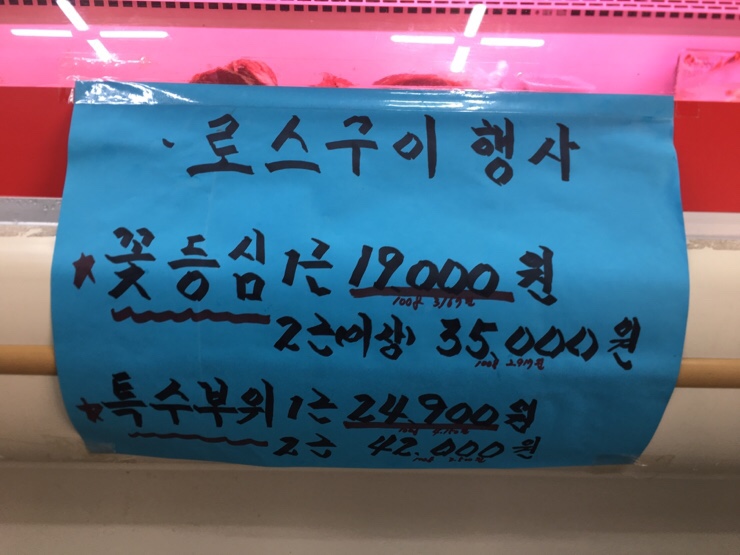 · 로스구이 행사
★ 꽃등심 1근 19,000원
100g 3,167원
2근이상 35,000원
100g 2,917원
★ 특수부위 1근 24,900원
2근 42,000원